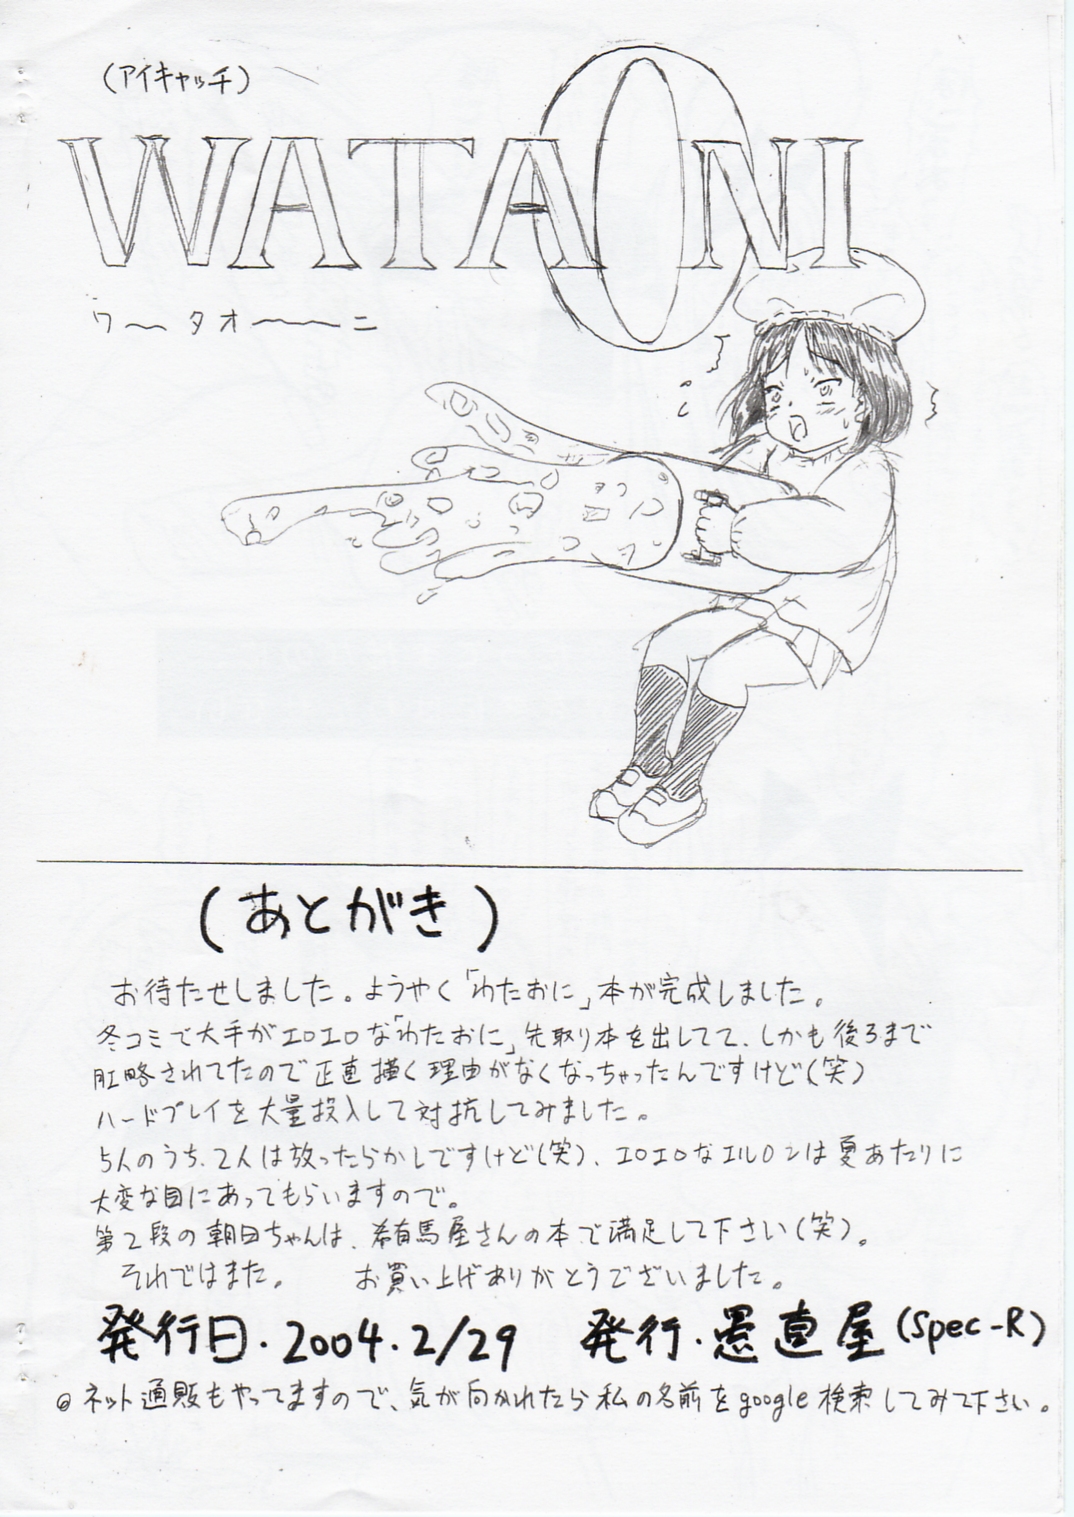 (アイキャッチ)
WATAONI
ワ〜 タオ〜ニ
(あとがき)
お待たせしました。ようやく「わたおに」本が完成しました。
冬コミで大手がエロエロな「わたおに」先取り本を出してて、しかも後ろまで
肛略されてたので正直描く理由がなくなっちゃったんですけど(笑)
ハードプレイを大量投入して対抗してみました。
5人のうち、2人は放ったらかしですけど(笑)、エロエロなエルロンは夏あたりに
大変な目にあってもらいますので。
第2段の朝日ちゃんは、希有馬屋さんの本で満足して下さい(笑)。
それではまた。 お買い上げありがとうございました。
発行日・2004.2/29 発行・愚直屋(Spec-R)
◎ネット通販もやってますので、気が向かれたら私の名前をgoogle検索してみて下さい。